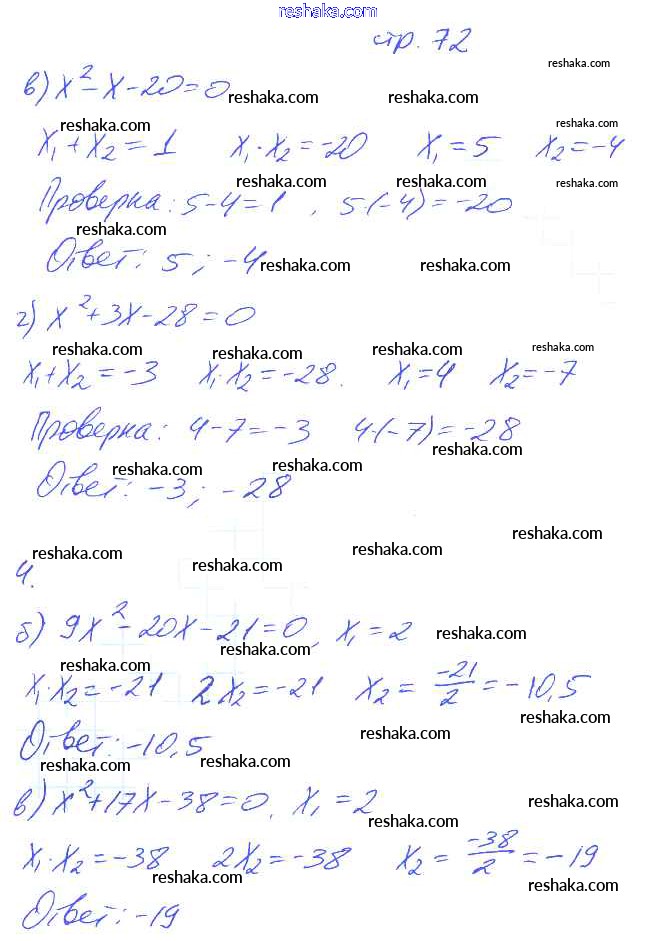 reshaka.com
стр. 72
reshaka.com
в) x²-x-20=0
reshaka.com reshaka.com
reshaka.com reshaka.com
x₁+x₂=1 x₁·x₂=-20 x₁=5 x₂=-4
reshaka.com reshaka.com reshaka.com
Проверка: 5-4=1, 5·(-4)=-20
reshaka.com
Ответ: 5; -4
reshaka.com reshaka.com
г) x²+3x-28=0
reshaka.com reshaka.com reshaka.com reshaka.com
x₁+x₂=-3 x₁·x₂=-28. x₁=4 x₂=-7
Проверка: 4-7=-3 4·(-7)=-28
reshaka.com
reshaka.com reshaka.com
Ответ: -3; -28
reshaka.com
reshaka.com reshaka.com reshaka.com
4.
б) 9x²-20x-21=0, x₁=2
reshaka.com
reshaka.com reshaka.com
x₁·x₂=-21 2x₂=-21 x₂=-21/2=-10,5
reshaka.com
Ответ: -10,5
reshaka.com
reshaka.com reshaka.com
в) x²+17x-38=0, x₁=2
reshaka.com
reshaka.com
x₁·x₂=-38 2x₂=-38 x₂=-38/2=-19
reshaka.com reshaka.com reshaka.com
Ответ: -19